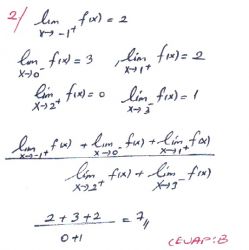 2/ lim x→-1⁺ f(x) = 2
lim x→0⁻ f(x) = 3 , lim x→1⁺ f(x) = 2
lim x→2⁺ f(x) = 0 lim x→3⁻ f(x) = 1
lim x→-1⁺ f(x) + lim x→0⁻ f(x) + lim x→1⁺ f(x)
lim x→2⁺ f(x) + lim x→3⁻ f(x)
2 + 3 + 2 = 7
0 + 1
CEVAP: B